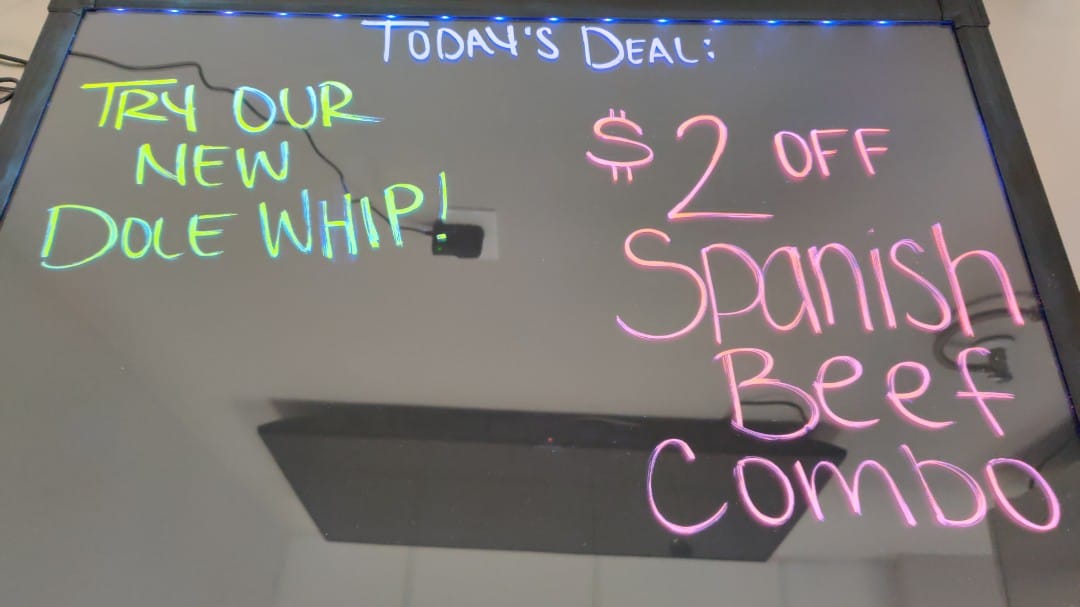 TODAY'S DEAL:
TRY OUR
NEW
DOLE WHIP!
$2 OFF
Spanish
Beef
Combo